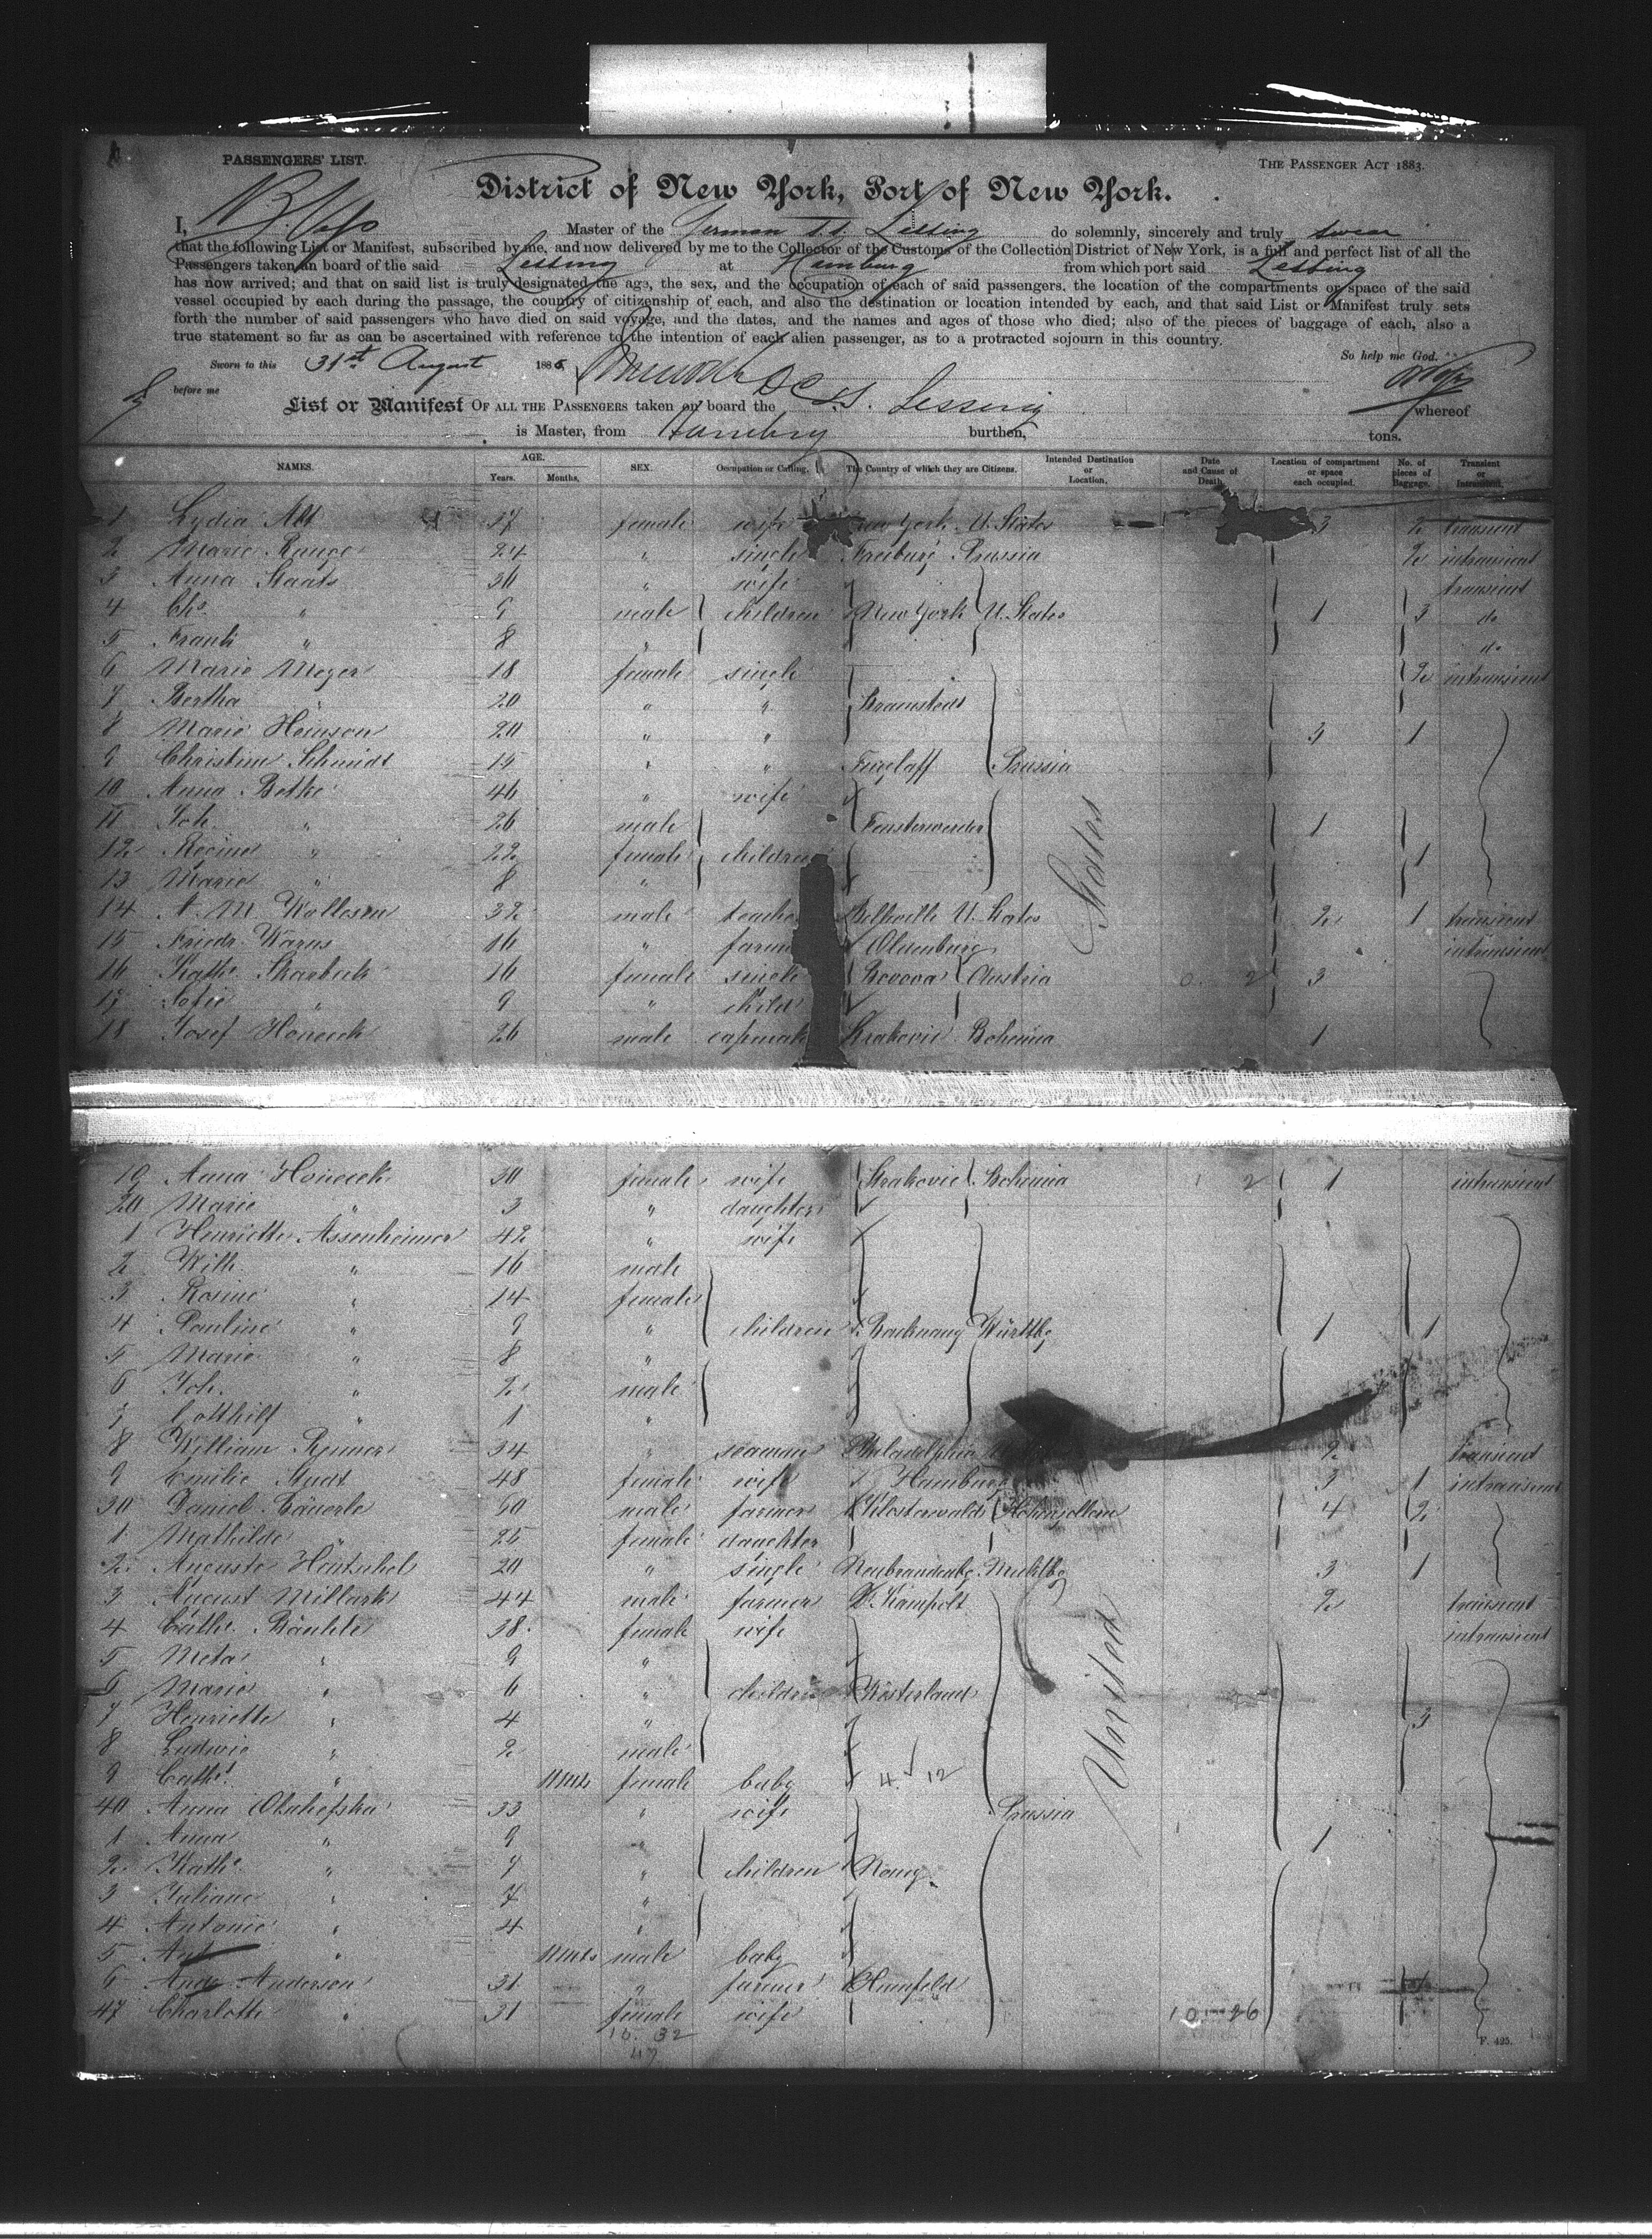 PASSENGERS' LIST.
THE PASSENGER ACT 1883.
District of New York, Port of New York.
I, Master of the German SS. Lessing do solemnly, sincerely and truly swear
that the following List or Manifest, subscribed by me, and now delivered by me to the Collector of the Customs of the Collection District of New York, is a full and perfect list of all the
Passengers taken on board of the said Lessing at Hamburg from which port said Lessing
has now arrived; and that on said list is truly designated the age, the sex, and the occupation of each of said passengers, the location of the compartments or space of the said
vessel occupied by each during the passage, the country of citizenship of each, and also the destination or location intended by each, and that said List or Manifest truly sets
forth the number of said passengers who have died on said voyage, and the dates, and the names and ages of those who died; also of the pieces of baggage of each, also a
true statement so far as can be ascertained with reference to the intention of each alien passenger, as to a protracted sojourn in this country.
So help me God.
Sworn to this 31st August 188
before me
List or Manifest OF ALL THE PASSENGERS taken on board the SS. Lessing whereof
is Master, from Hamburg burthen, tons.
NAMES. AGE. Years. Months. SEX. Occupation or Calling. The Country of which they are Citizens. Intended Destination or Location. Date and Cause of Death. Location of compartment or space each occupied. No. of pieces of Baggage. Transient or Intransient.
1 Lydia Alt 37 female wife New York U. States 3 2 transient
2 Marie Runge 24 " single Freiburg Prussia 2 intransient
3 Anna Staats 36 " wife transient
4 Chs. " 9 male children New York U. States 1 3 do
5 Frank " 8 " do
6 Marie Meyer 18 female single 2 intransient
7 Bertha " 20 " " Bramstedt
8 Marie Hemson 20 " " 3 1
9 Christine Schmidt 15 " " Prussia
10 Anna Betke 46 " wife
11 Joh. " 26 male Finsterwerder 1
12 " 22 female children 1
13 Marie " 8 "
14 32 male teacher U. States 2 1 transient
15 Friedr. Warus 16 " farm Olumburg intransient
16 Kath. Skarbek 16 female single Austria 0. 2 3
17 Sofie " 9 " child
18 Josef Honecek 26 male Krakovic Bohemia 1
19 Anna Honecek 30 female wife Krakovic Bohemia 2 1 intransient
20 Marie " 3 " daughter
1 Henriette Assenheimer 42 " wife
2 Wilh. " 16 male
3 Rosine " 14 female
4 Pauline " 9 " children Backnang Württbg 1 1
5 Marie " 8 "
6 Joh. " 2 male
7 Gotthilf " 1 "
8 William 34 " seaman Philadelphia 2 transient
9 Emilie Studt 48 female wife Hamburg 3 1 intransient
30 Daniel 60 male farmer Klosterwald Hohenzollern 4 2
1 Mathilde " 25 female daughter
2 Auguste Häntschel 20 " single Neubrandenbg Mecklbg 3 1
3 August Millark 44 male farmer 2 transient
4 Cath. 38 female wife intransient
5 Meta " 9 "
6 Marie " 6 " children Westerland
7 Henriette " 4 " 3
8 Ludwig " 2 male
9 Cath. " female baby 4 12
40 Anna 33 " wife Prussia
1 Anna " 9 " 1
2 Kath. " 7 " children
3 Juliane " 7 "
4 Antonie " 4 "
5 " male baby
6 Anderson 31 " farmer
47 Charlotte " 31 female wife 10 26
United States
15. 32
47
F. 425.